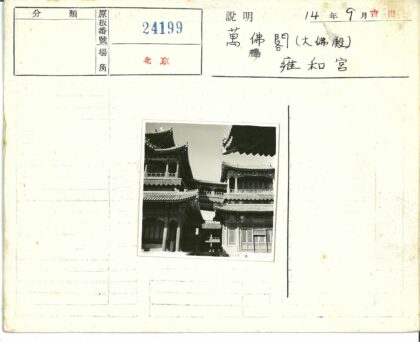 分類
原板番號
24199
場所
北京
說明
14年9月
萬佛閣(大佛殿)
雍和宮